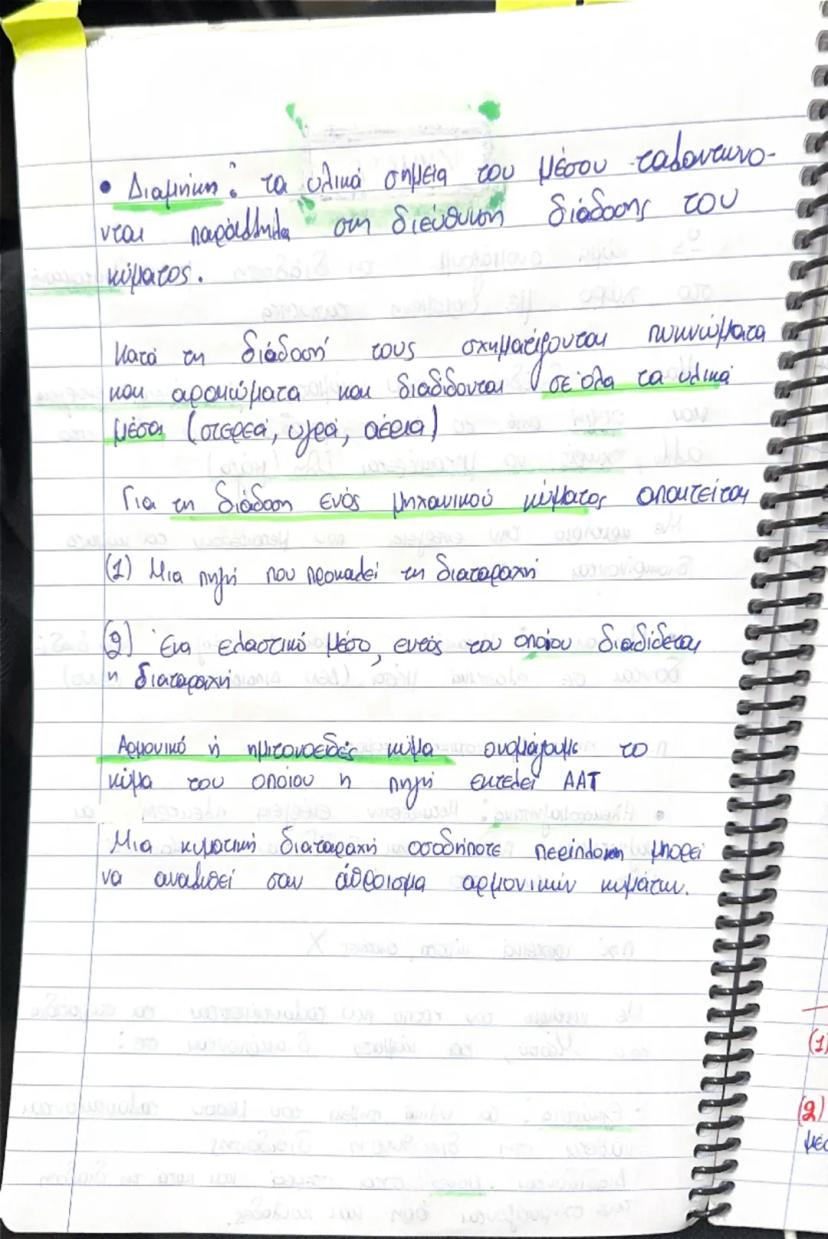 • Διαμήκη: τα υλικά σημεία του μέσου ταλαντωνο-
νται παράλληλα στη διεύθυνση διάδοσης του
κύματος.
Κατά τη διάδοσή τους σχηματίζονται πυκνώματα
και αραιώματα και διαδίδονται σε όλα τα υλικά
μέσα (στερεά, υγρά, αέρια)
Για τη διάδοση ενός μηχανικού κύματος απαιτείται
(1) Μια πηγή που προκαλεί τη διαταραχή
(2) Ένα ελαστικό μέσο, εντός του οποίου διαδίδεται
η διαταραχή
Αρμονικό ή ημιτονοειδές κύμα ονομάζουμε το
κύμα του οποίου η πηγή εκτελεί ΑΑΤ
Μια κυματική διαταραχή οσοδήποτε περίπλοκη μπορεί
να αναλυθεί σαν άθροισμα αρμονικών κυμάτων.
(1)
(2)
μέσ